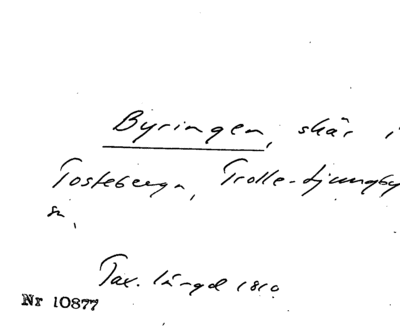 Byringen, skär i
Tosteberga, Trolle-Ljungby
sn.
Tax. längd 1810
Nr 10877